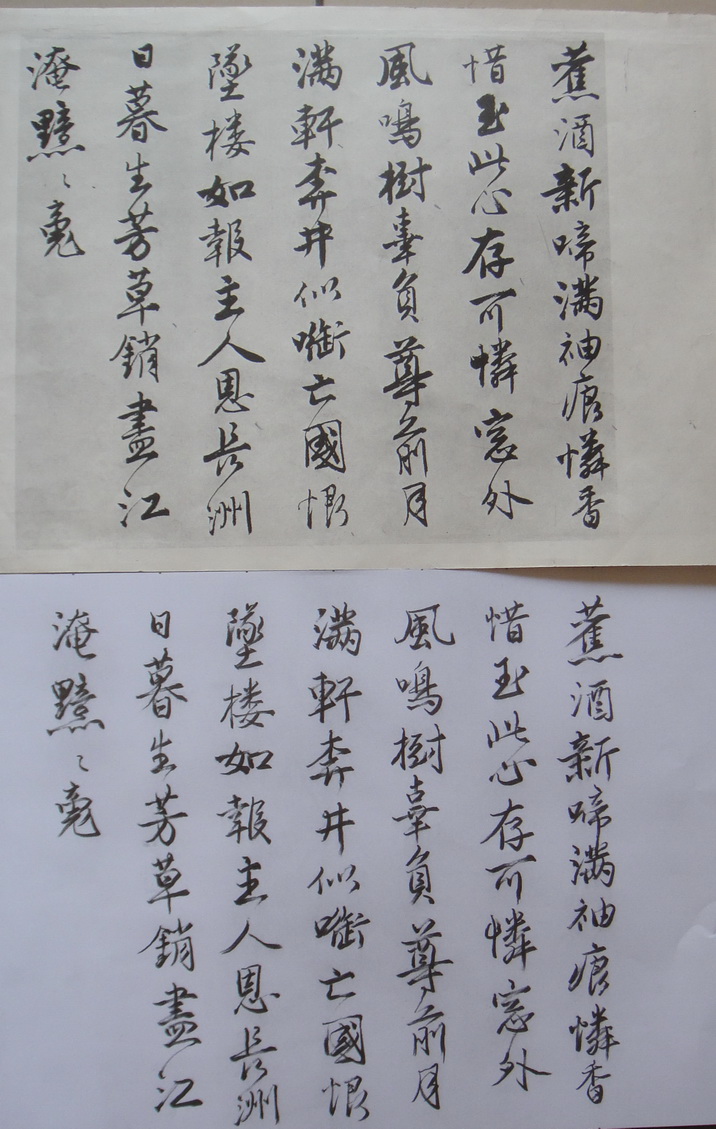 蕉酒新啼满袖痕憐香
惜玉此心存可憐窓外
風鳴樹辜負尊前月
满軒奔井似啣亡國恨
墜楼如報主人恩長洲
日暮生芳草銷盡江
淹黯〻魂
蕉酒新啼满袖痕憐香
惜玉此心存可憐窓外
風鳴樹辜負尊前月
满軒奔井似啣亡國恨
墜楼如報主人恩長洲
日暮生芳草銷盡江
淹黯〻魂